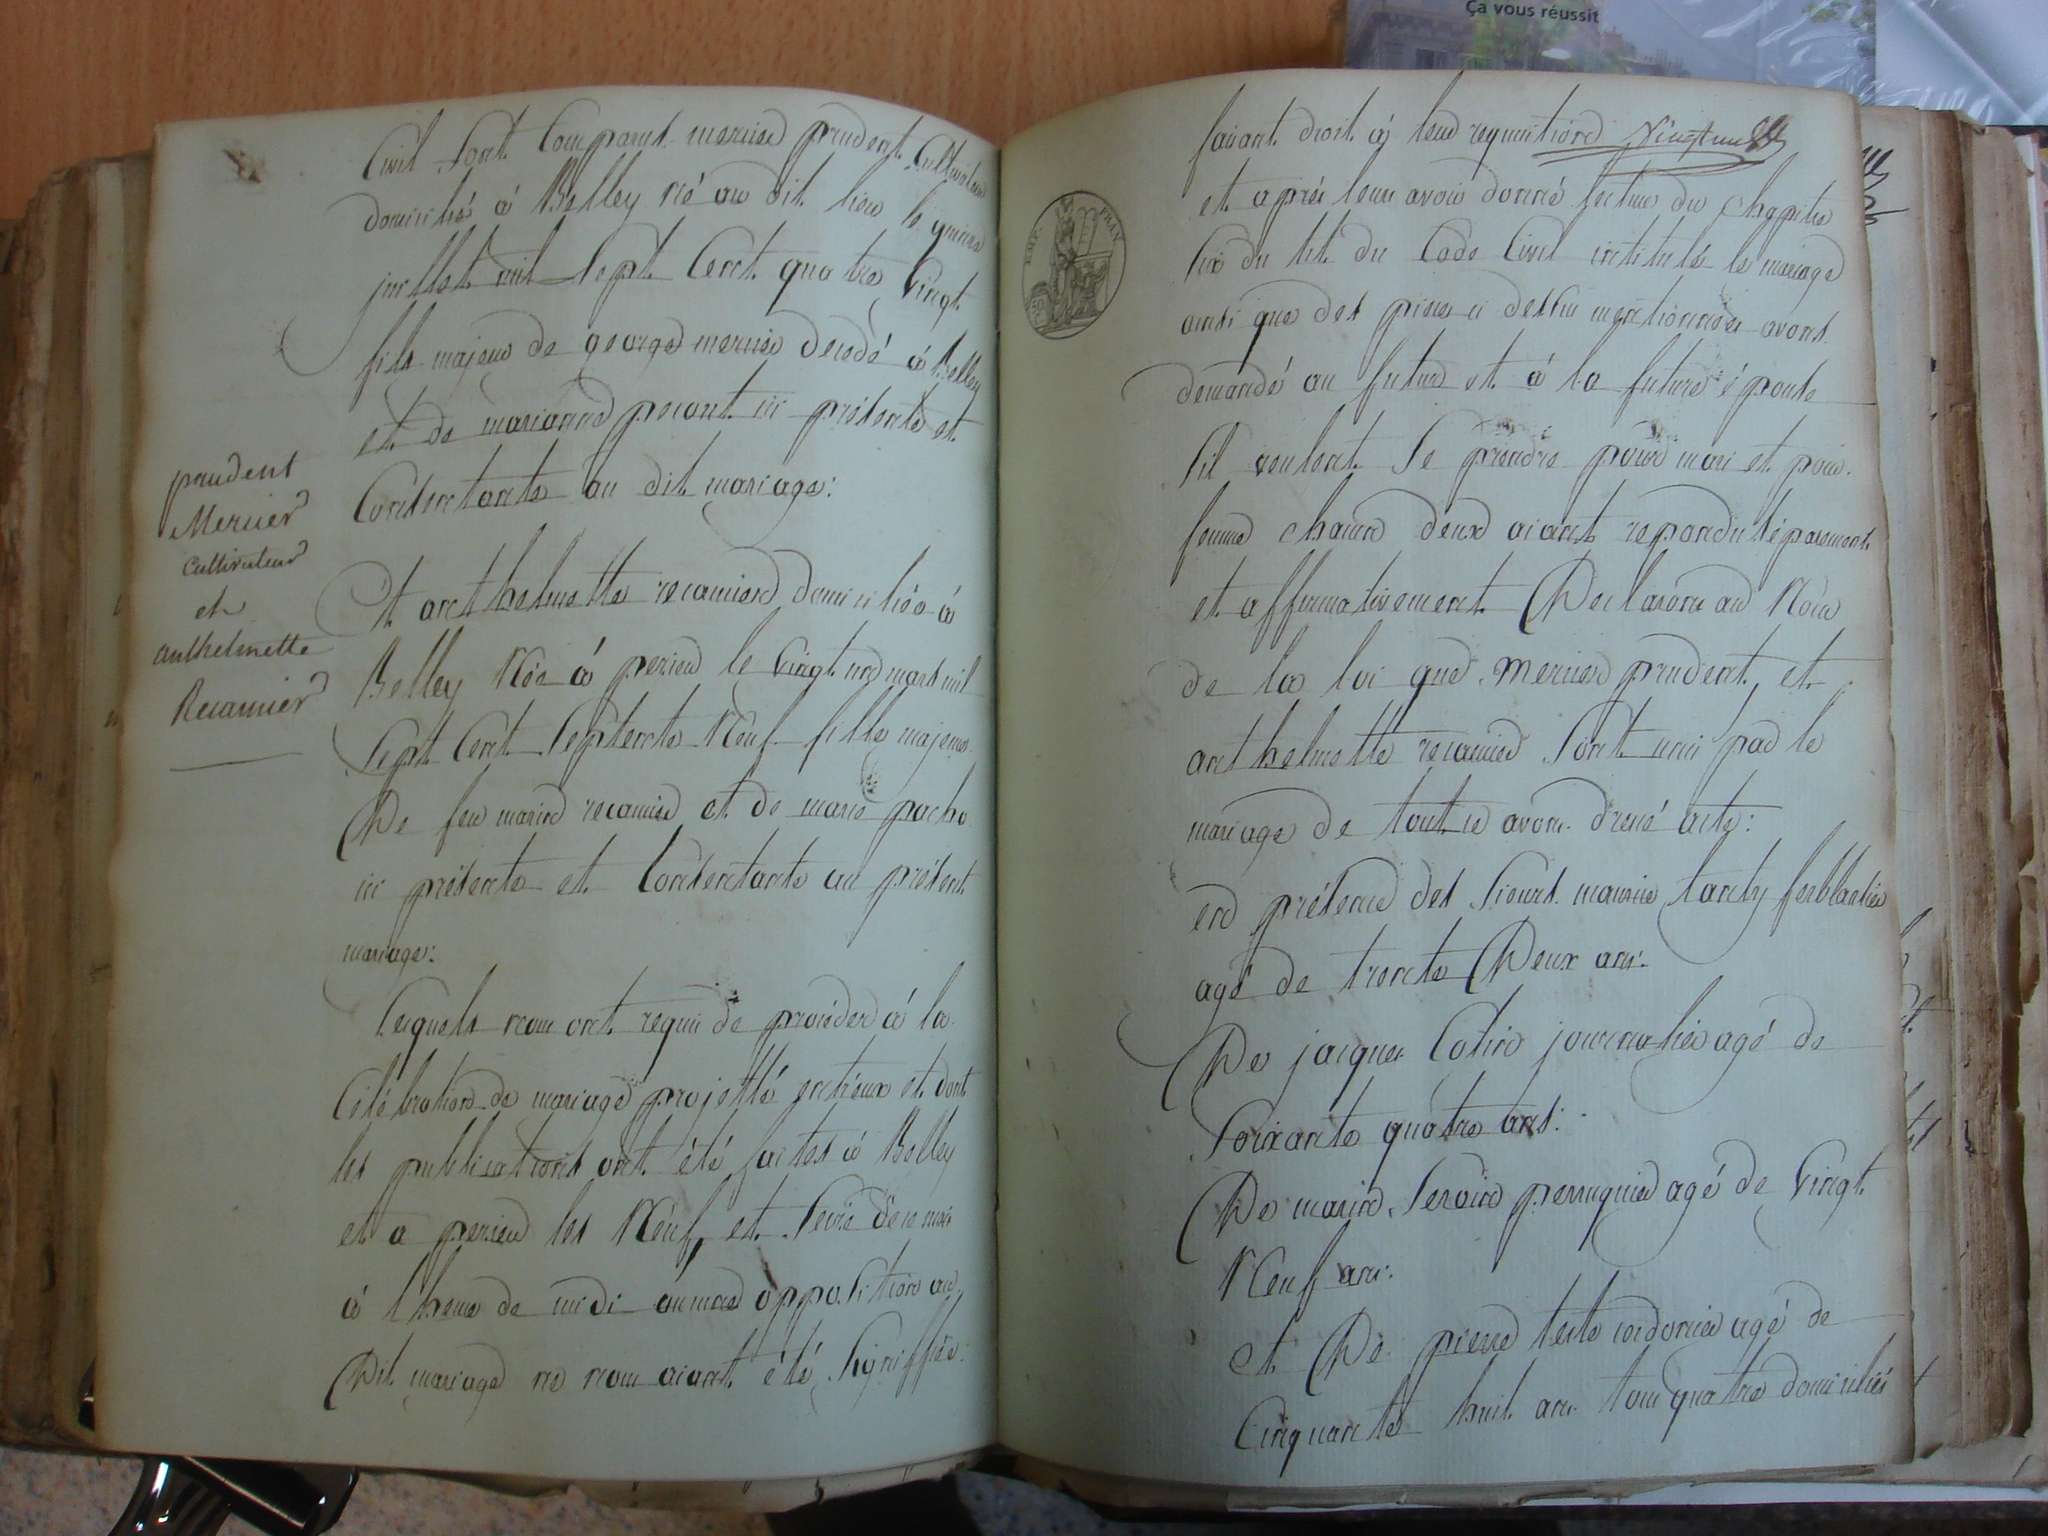 Ça vous réussit
Civil Sont Comparus mercier prudent Cultivateur
domicilié à Belley né au dit lieu le quinze
juillet mil Sept Cent quatre Vingt
fils majeur de george mercier decedé à Belley
et de marianne ici présente et
Consentante au dit mariage:
prudent
Mercier
Cultivateur
et
anthelmette
Recamier
Et anthelmette recamier domiciliée à
Belley Née à le Vingt un mars mil
Sept Cent Septente Neuf fille majeure
De feu marin recamier et de marie pacho
ici présente et Consentante au présent
mariage:
Lesquels nous ont requis de procéder à la
Célébration de mariage projetté entreux et dont
les publications ont été faites à Belley
et a les Neuf et Seize
à l'heure de midi aucune opposition au
Dit mariage ne nous aiant été Signiffiée:
faisant droit à leur requisitions
EMP. FRAN.
50 C
et après leurs avoir donné lecture du Chapitre
Six du tit. du Code Civil intitulés le mariage
ainsi que des pieces ci dessus mentionnées avons
demandé au futur et à la future épouse
Sil veulent Se prendre pour mari et pour
femme chacun deux aiant repondu séparement
et affirmativement Declarons au Nom
de la loi que Mercier prudent et
anthelmette recamier Sont unis par le
mariage de tout ce avons dressé acte:
en présence des Sieurs maurice tardy ferblantier
agé de trente Deux ans.
De jacques Cotin journalier agé de
Soixante quatre ans:
De marin perruquier agé de Vingt
Neuf ans.
et De pierre teste cordonier agé de
Cinquante huit ans tous quatre domiciliés